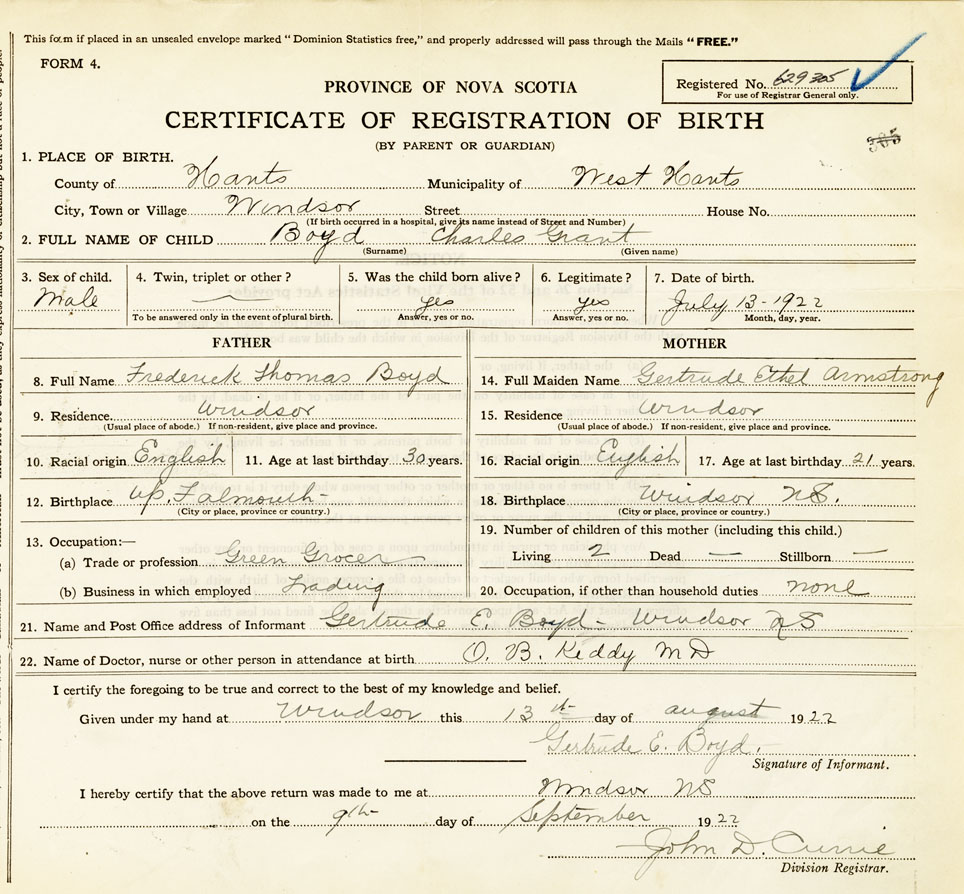 This form if placed in an unsealed envelope marked "Dominion Statistics free," and properly addressed will pass through the Mails "FREE."
FORM 4.
Registered No. 629305
For use of Registrar General only.
PROVINCE OF NOVA SCOTIA
CERTIFICATE OF REGISTRATION OF BIRTH
(BY PARENT OR GUARDIAN)
305
1. PLACE OF BIRTH.
County of Hants Municipality of West Hants
City, Town or Village Windsor Street House No.
(If birth occurred in a hospital, give its name instead of Street and Number)
2. FULL NAME OF CHILD Boyd Charles Grant
(Surname) (Given name)
3. Sex of child. 4. Twin, triplet or other? 5. Was the child born alive? 6. Legitimate? 7. Date of birth.
Male — yes yes July 13-1922
To be answered only in the event of plural birth. Answer, yes or no. Answer, yes or no. Month, day, year.
FATHER MOTHER
8. Full Name Frederick Thomas Boyd 14. Full Maiden Name Gertrude Ethel Armstrong
9. Residence. Windsor 15. Residence Windsor
(Usual place of abode.) If non-resident, give place and province. (Usual place of abode.) If non-resident, give place and province.
10. Racial origin English 11. Age at last birthday 30 years. 16. Racial origin English 17. Age at last birthday 21 years.
12. Birthplace up. Falmouth- 18. Birthplace Windsor NS.
(City or place, province or country.) (City or place, province or country.)
19. Number of children of this mother (including this child.)
13. Occupation:—
Living 2 Dead — Stillborn —
(a) Trade or profession Green Grocer
(b) Business in which employed Trading 20. Occupation, if other than household duties none
21. Name and Post Office address of Informant Gertrude E. Boyd- Windsor NS
22. Name of Doctor, nurse or other person in attendance at birth O. B. Keddy MD
I certify the foregoing to be true and correct to the best of my knowledge and belief.
Given under my hand at Windsor this 13th day of august 1922
Gertrude E. Boyd.
Signature of Informant.
I hereby certify that the above return was made to me at Windsor NS
on the 9th day of September 1922
John D. Currie
Division Registrar.